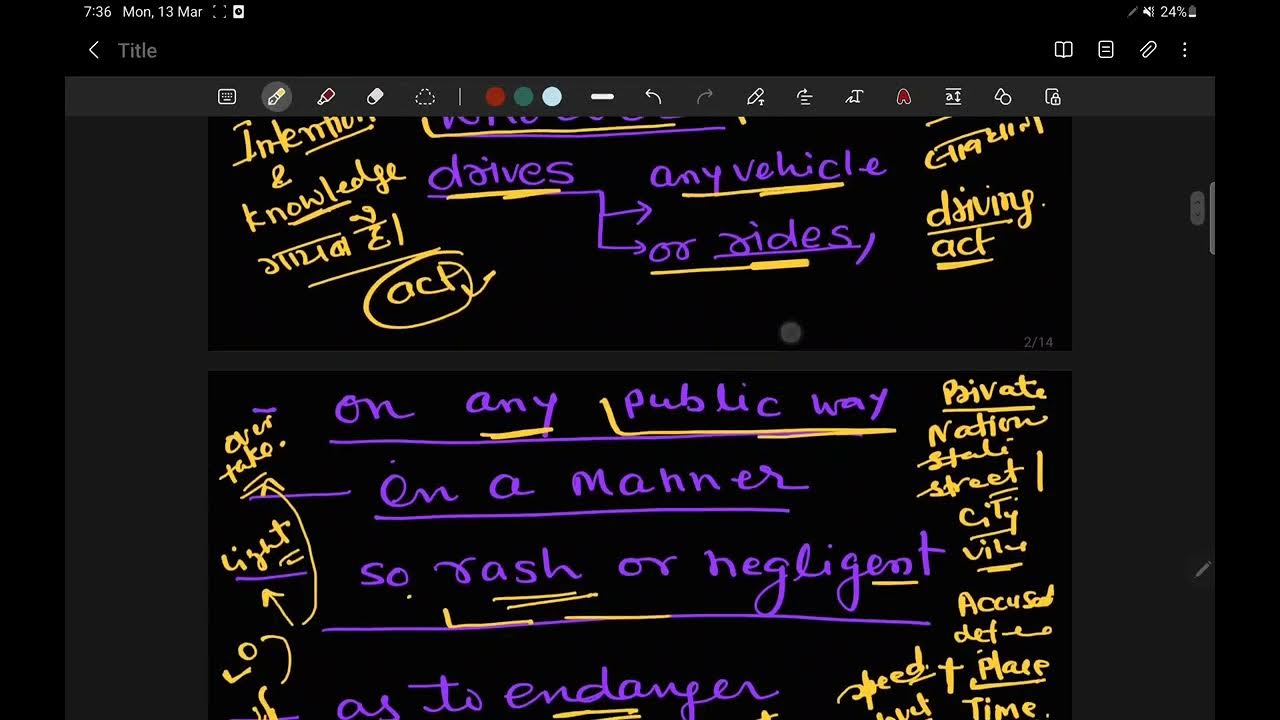 7:36 Mon, 13 Mar
24%
Title
Intention
&
knowledge
गायब है।
act
drives
any vehicle
or rides,
driving.
act
2/14
on any public way
in a manner
so rash or negligent
as to endanger
over
take.
light
Private
Nation
State
street
City
Accused
speed + Place
Time.